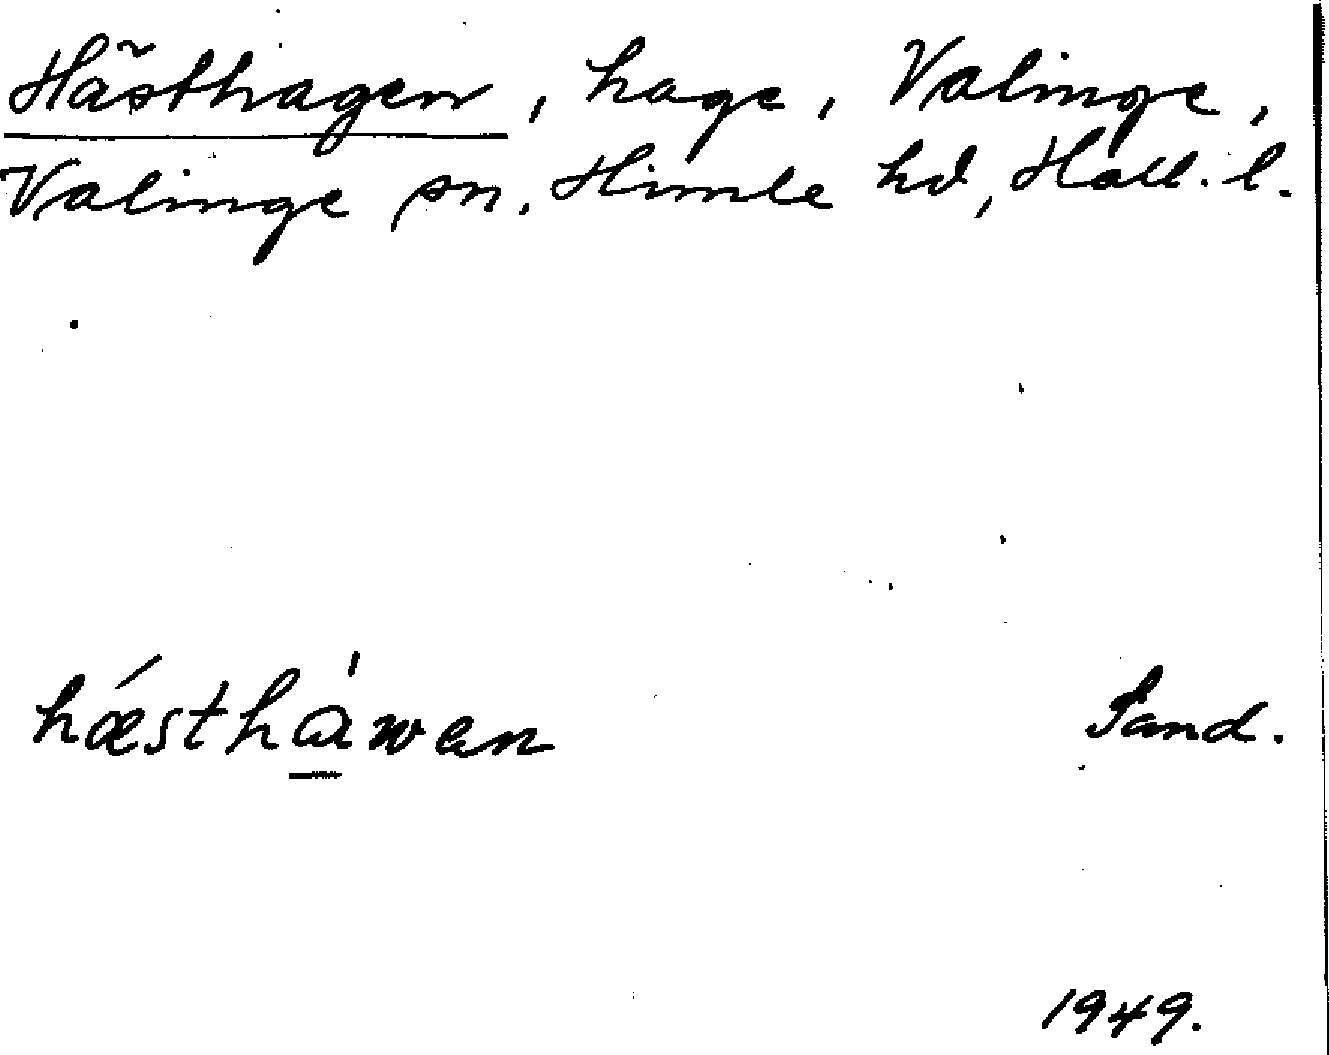 Hästhagen, hage, Valinge,
Valinge sn, Himle hd, Hall. l.
hǽsthàwen Sand.
1949.